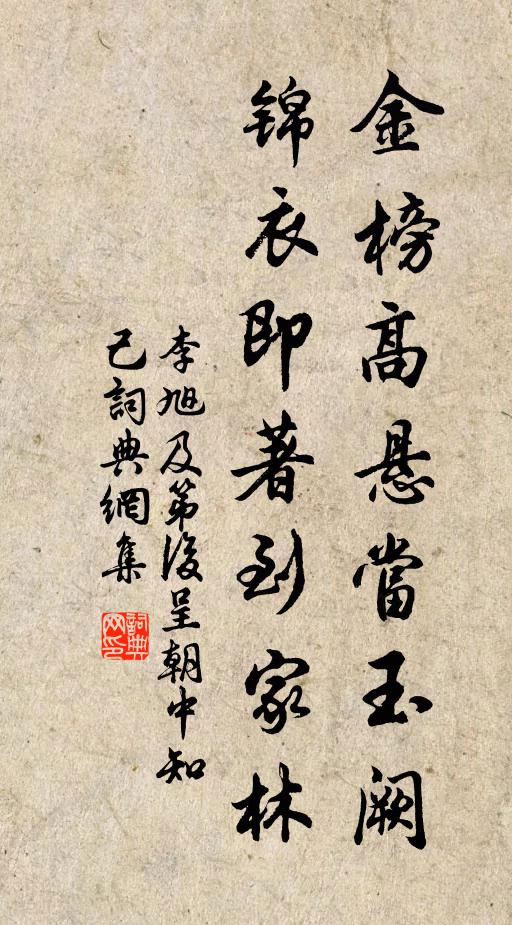 金榜高悬當玉阙
锦衣即著到家林
李旭及第後呈朝中知
己詞典網集
詞典
网印